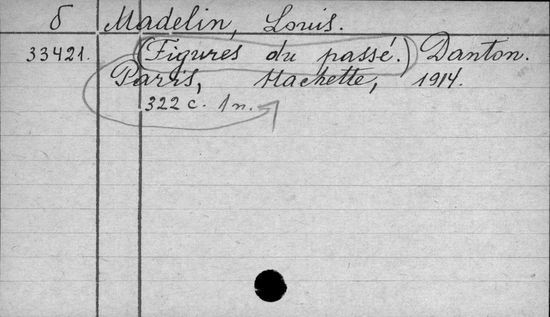 δ Madelin, Louis.
33421. (Figures du passé.) Danton.
Paris, Hachette, 1914.
322 c. 1 n.